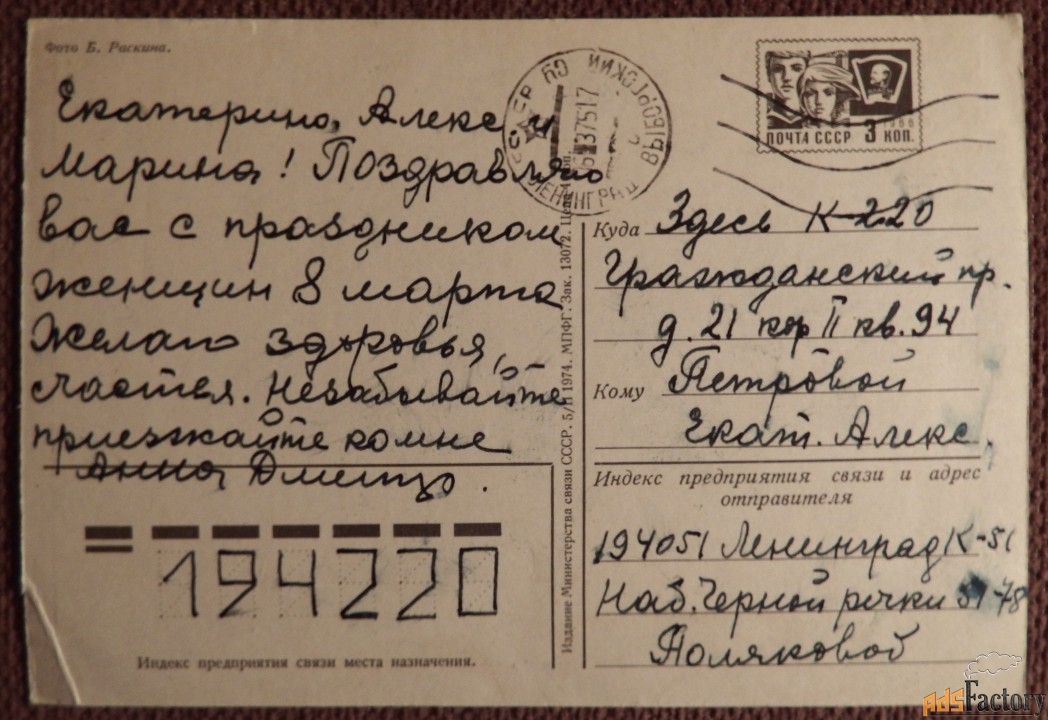 Фото Б. Раскина.
Екатерина, Алекс и
Марина! Поздравляю
вас с праздником
женщин 8 марта
Желаю здоровья,
счастья. Незабывайте
приезжайте комне
Анна Дмит
194220
Индекс предприятия связи места назначения.
Издание Министерства связи СССР. 5/II 1974. МПФГ. Зак. 13072. Цена коп.
ЛЕНИНГРАД
ПОЧТА СССР 3 КОП.
1966
Куда Здесь К-220
Гражданский пр.
д. 21 кор II кв. 94
Кому Петровой
Екат. Алекс.
Индекс предприятия связи и адрес
отправителя
194051 Ленинград К-51
Наб. Черной речки 51-78
Поляковой
AdsFactory